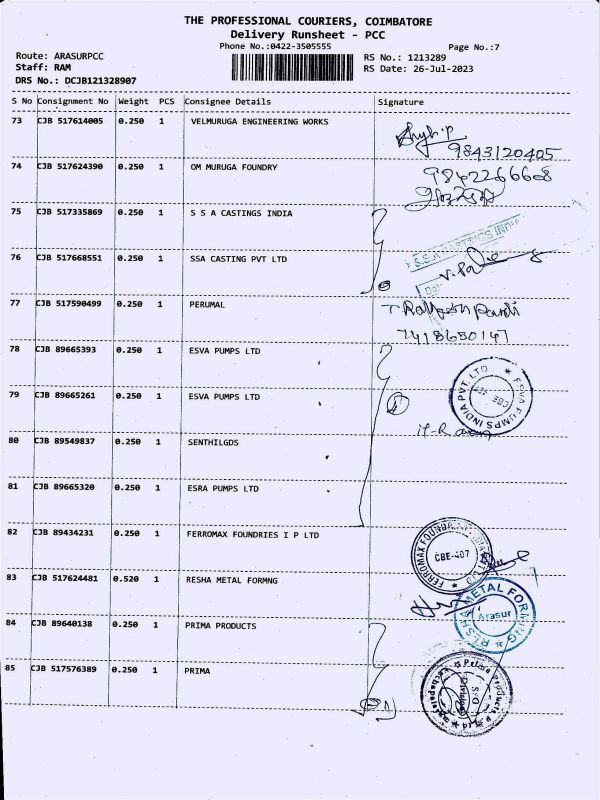 THE PROFESSIONAL COURIERS, COIMBATORE
Delivery Runsheet - PCC
Phone No.:0422-3505555
Page No.:7
Route: ARASURPCC
RS No.: 1213289
Staff: RAM
RS Date: 26-Jul-2023
DRS No.: DCJB121328907
S No Consignment No Weight PCS Consignee Details Signature
73 CJB 517614005 0.250 1 VELMURUGA ENGINEERING WORKS
9843120405
74 CJB 517624390 0.250 1 OM MURUGA FOUNDRY
9842266608
75 CJB 517335869 0.250 1 S S A CASTINGS INDIA
S.S.A CASTINGS INDIA
76 CJB 517668551 0.250 1 SSA CASTING PVT LTD
77 CJB 517590499 0.250 1 PERUMAL
7418650147
78 CJB 89665393 0.250 1 ESVA PUMPS LTD
ESVA PUMPS INDIA PVT. LTD
CBE
79 CJB 89665261 0.250 1 ESVA PUMPS LTD
4
80 CJB 89549837 0.250 1 SENTHILGDS
81 CJB 89665320 0.250 1 ESRA PUMPS LTD
82 CJB 89434231 0.250 1 FERROMAX FOUNDRIES I P LTD
CBE-407
83 CJB 517624481 0.520 1 RESHA METAL FORMNG
RESHA METAL FORMING
Arasur
84 CJB 89640138 0.250 1 PRIMA PRODUCTS
85 CJB 517576389 0.250 1 PRIMA